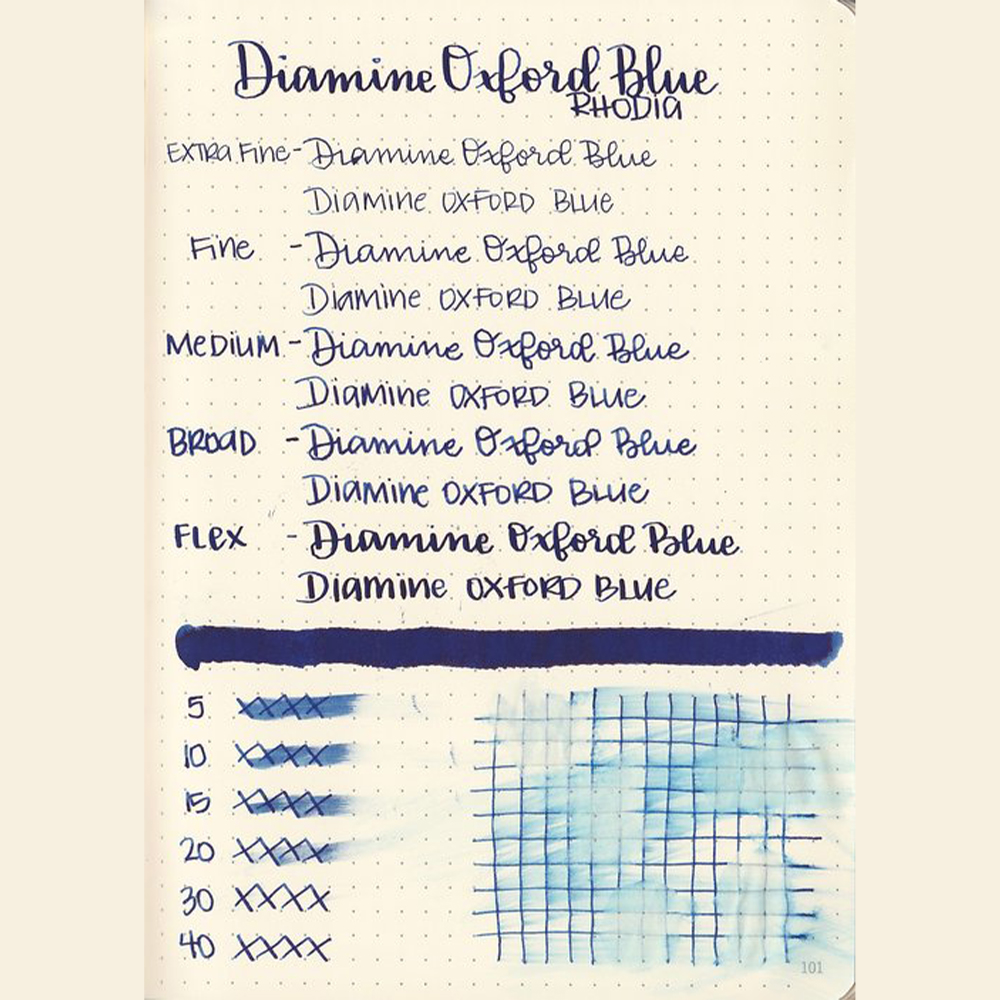 Diamine Oxford Blue
RHODIA
EXTRA Fine - Diamine Oxford Blue
Diamine OXFORD BLUE
Fine - Diamine Oxford Blue
Diamine OXFORD BLUE
MeDiUM - Diamine Oxford Blue
Diamine OXFORD BLUE
BROaD - Diamine Oxford Blue
Diamine OXFORD BLUE
FLex - Diamine Oxford Blue
Diamine OXFORD BLUE
5 XXXX
10 XXXX
15 XXXX
20 XXXX
30 XXXX
40 XXXX
101